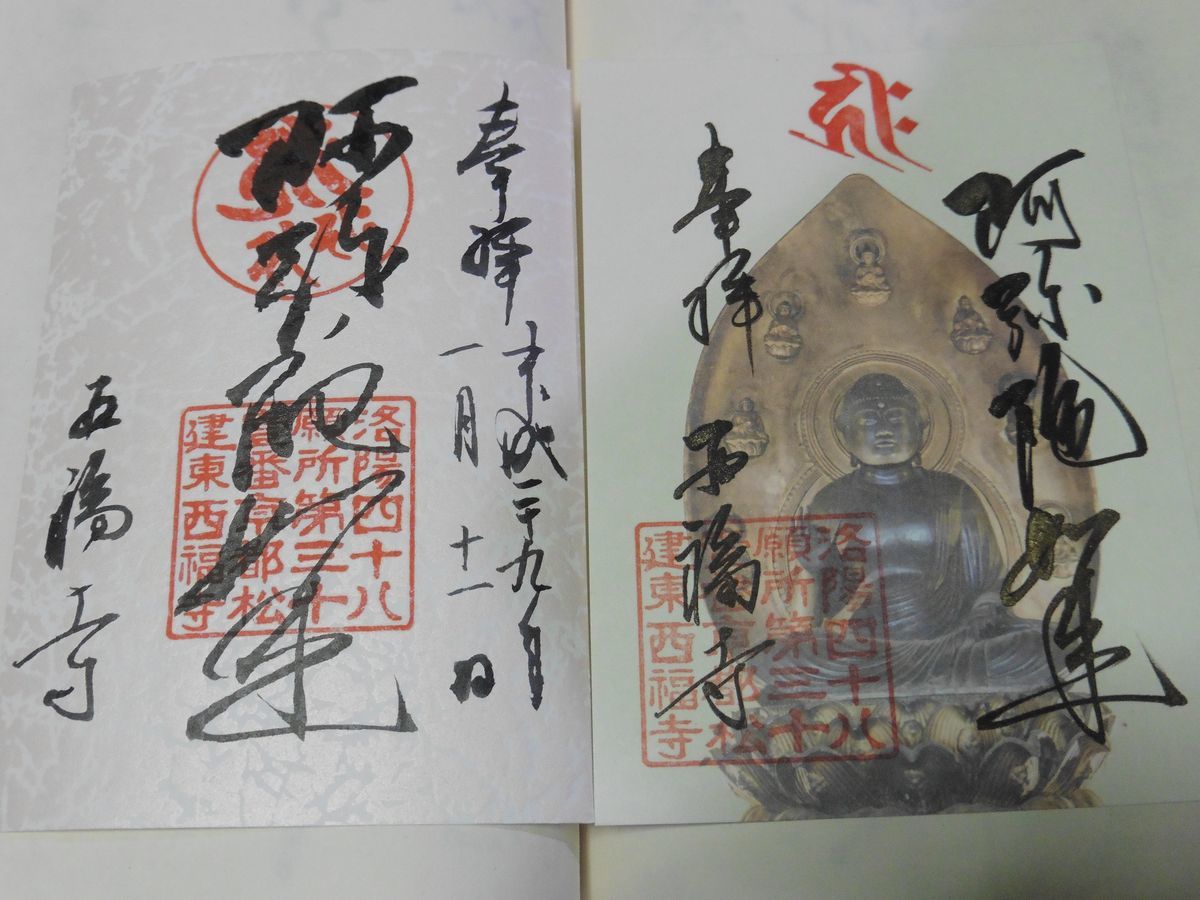 阿弥陀如来
奉拝
西福寺
洛陽四十八
願所第三十
壹番京都松
建東西福寺
奉拝 平成二十九年
一月十一日
阿弥陀如来
洛陽四十八
願所第三十
壹番京都松
建東西福寺
西福寺